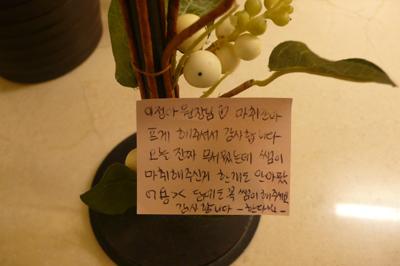 이정아 원장님 ♡ 마취 안아
프게 해주셔서 감사합니다
오늘 진짜 무서웠는데 쌤이
마취해주신게 한개도 안아팠
담에도 꼭 쌤이 해주세요
감사합니다